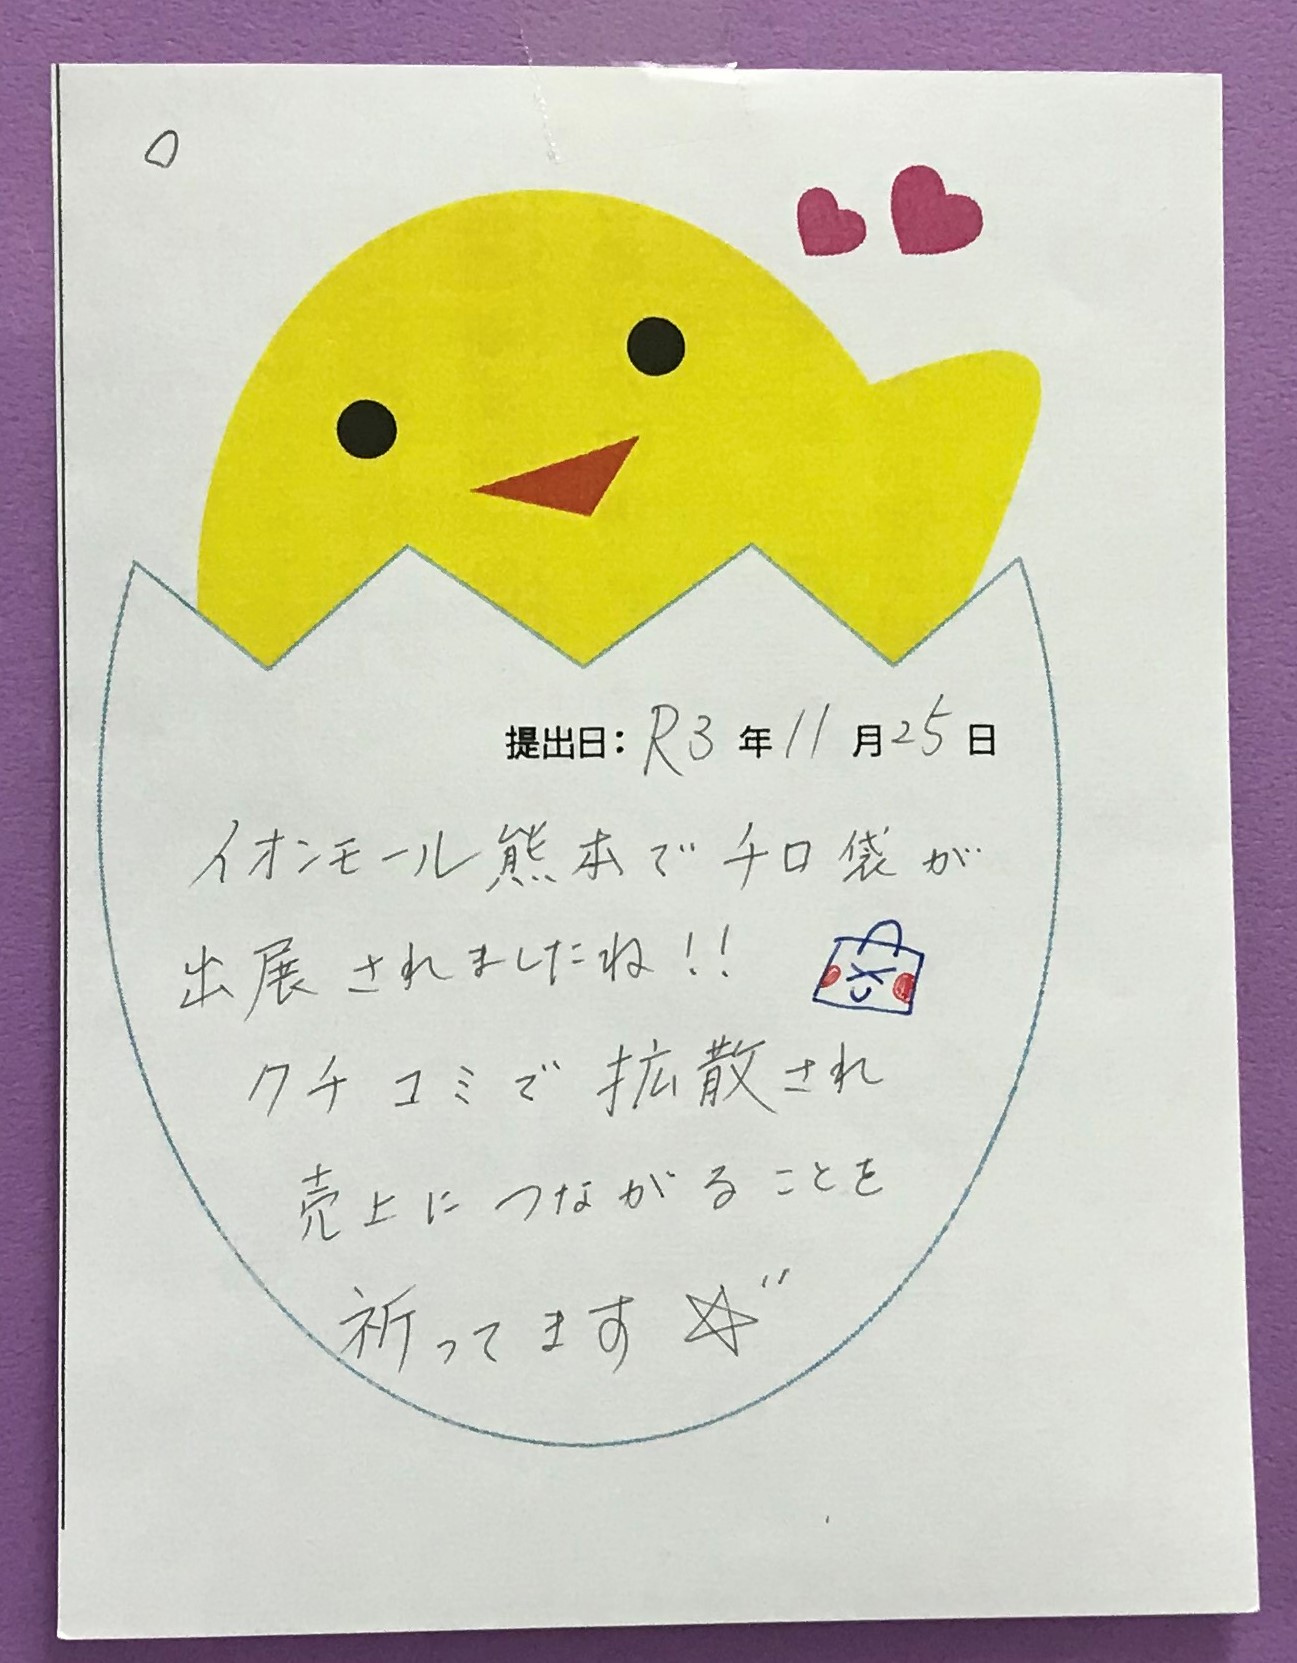 提出日：R3年11月25日
イオンモール熊本でチロ袋が
出展されましたね!!
クチコミで拡散され
売上につながることを
祈ってます☆"